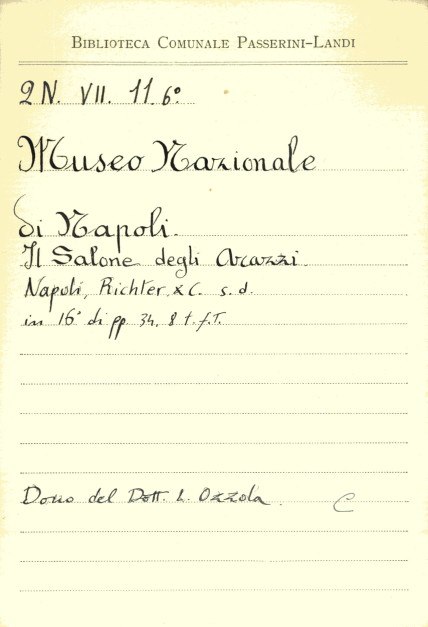 BIBLIOTECA COMUNALE PASSERINI-LANDI
2N. VII. 11. 6°
Museo Nazionale
di Napoli.
Il Salone degli Arazzi
Napoli, Richter & C. s. d.
in 16° di pp. 34, 8 t. f.T.
Dono del Dott. L. Ozzola. C